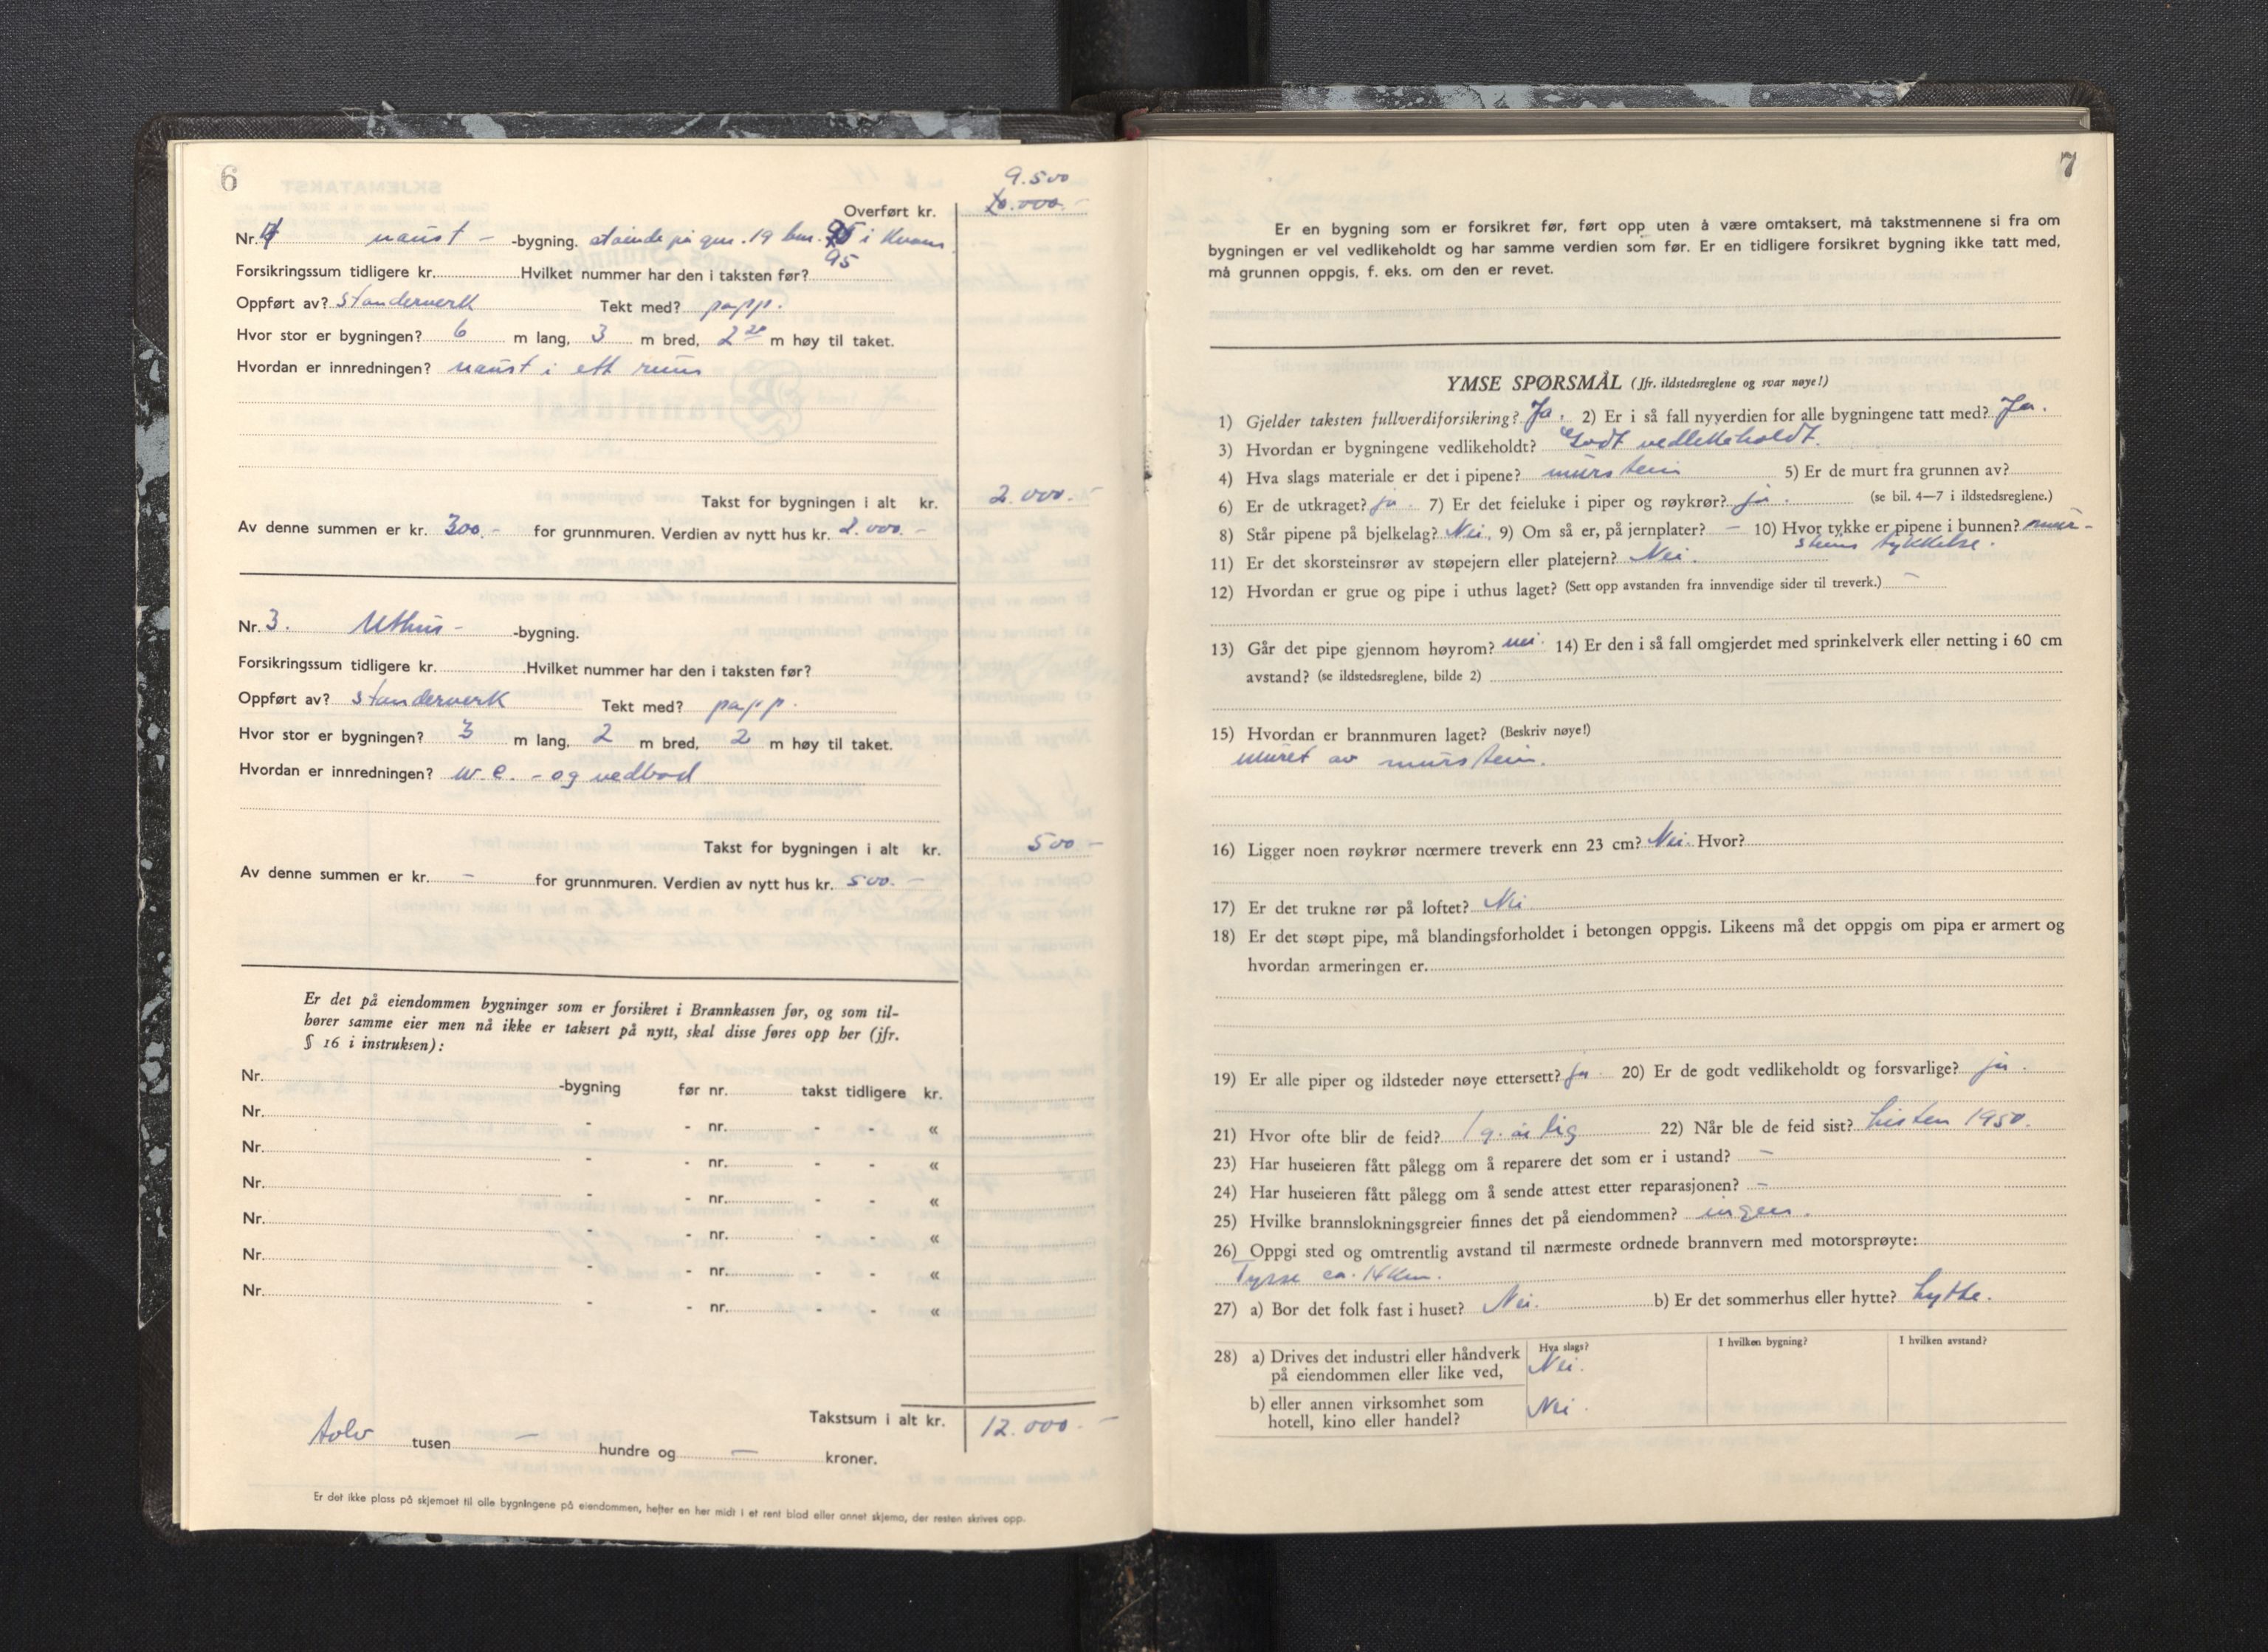 6
9.500
Overført kr. 10.000.-
Nr. 4 naust - -bygning. stående på gnr. 19 bnr. 95 i Kvam.
95
Forsikringssum tidligere kr. Hvilket nummer har den i taksten før?
Oppført av? standerverk Tekt med? papp.
Hvor stor er bygningen? 6 m lang, 3 m bred, 2 20 m høy til taket.
Hvordan er innredningen? naust i ett rum
Takst for bygningen i alt kr. 2.000.-
Av denne summen er kr. 300.- for grunnmuren. Verdien av nytt hus kr. 2.000.-
Nr. 3. Uthus- -bygning.
Forsikringssum tidligere kr. Hvilket nummer har den i taksten før?
Oppført av? standerverk Tekt med? papp.
Hvor stor er bygningen? 3 m lang, 2 m bred, 2 m høy til taket.
Hvordan er innredningen? w.c. - og vedbod
Takst for bygningen i alt kr. 500-
Av denne summen er kr. - for grunnmuren. Verdien av nytt hus kr. 500.-
Er det på eiendommen bygninger som er forsikret i Brannkassen før, og som til-
hører samme eier men nå ikke er taksert på nytt, skal disse føres opp her (jfr.
§ 16 i instruksen):
Nr. -bygning før nr. takst tidligere kr.
Nr. - - nr. - - «
Nr. - - nr. - - «
Nr. - - nr. - - «
Nr. - - nr. - - «
Nr. - - nr. - - «
Nr. - - nr. - - «
Takstsum i alt kr. 12.000.-
tolv tusen - hundre og - kroner.
Er det ikke plass på skjemaet til alle bygningene på eiendommen, hefter en her midt i et rent blad eller annet skjema, der resten skrives opp.
7
Er en bygning som er forsikret før, ført opp uten å være omtaksert, må takstmennene si fra om
bygningen er vel vedlikeholdt og har samme verdien som før. Er en tidligere forsikret bygning ikke tatt med,
må grunnen oppgis, f. eks. om den er revet.
YMSE SPØRSMÅL (Jfr. ildstedsreglene og svar nøye!)
1) Gjelder taksten fullverdiforsikring? Ja. 2) Er i så fall nyverdien for alle bygningene tatt med? Ja.
3) Hvordan er bygningene vedlikeholdt? Godt vedlikeholdt.
4) Hva slags materiale er det i pipene? murstein 5) Er de murt fra grunnen av?
6) Er de utkraget? ja. 7) Er det feieluke i piper og røykrør? ja. (se bil. 4—7 i ildstedsreglene.)
8) Står pipene på bjelkelag? Nei, 9) Om så er, på jernplater? - 10) Hvor tykke er pipene i bunnen? mur-
steins tykkelse.
11) Er det skorsteinsrør av støpejern eller platejern? Nei.
12) Hvordan er grue og pipe i uthus laget? (Sett opp avstanden fra innvendige sider til treverk.) -
13) Går det pipe gjennom høyrom? nei. 14) Er den i så fall omgjerdet med sprinkelverk eller netting i 60 cm
avstand? (se ildstedsreglene, bilde 2)
15) Hvordan er brannmuren laget? (Beskriv nøye!)
muret av murstein.
16) Ligger noen røykrør nærmere treverk enn 23 cm? Nei. Hvor?
17) Er det trukne rør på loftet? Nei
18) Er det støpt pipe, må blandingsforholdet i betongen oppgis. Likeens må det oppgis om pipa er armert og
hvordan armeringen er.
19) Er alle piper og ildsteder nøye ettersett? ja. 20) Er de godt vedlikeholdt og forsvarlige? ja.
21) Hvor ofte blir de feid? 1 g. årlig 22) Når ble de feid sist? høsten 1950.
23) Har huseieren fått pålegg om å reparere det som er i ustand? -
24) Har huseieren fått pålegg om å sende attest etter reparasjonen? -
25) Hvilke brannslokningsgreier finnes det på eiendommen? ingen.
26) Oppgi sted og omtrentlig avstand til nærmeste ordnede brannvern med motorsprøyte:
Tysse ca. 14 km.
27) a) Bor det folk fast i huset? Nei. b) Er det sommerhus eller hytte? hytte.
28) a) Drives det industri eller håndverk på eiendommen eller like ved, Hva slags? Nei. I hvilken bygning? I hvilken avstand?
b) eller annen virksomhet som hotell, kino eller handel? Nei.